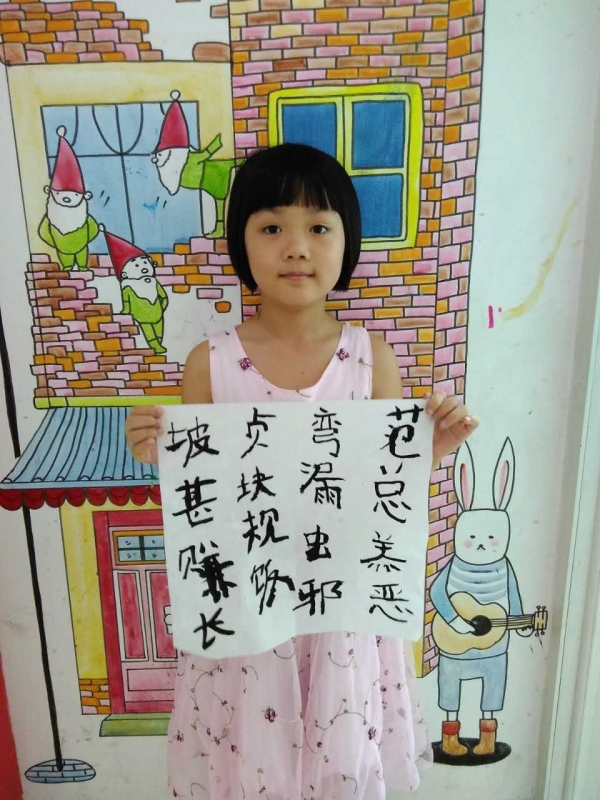 范总羔恶
弯漏虫邪
贞块规
坡甚赚长